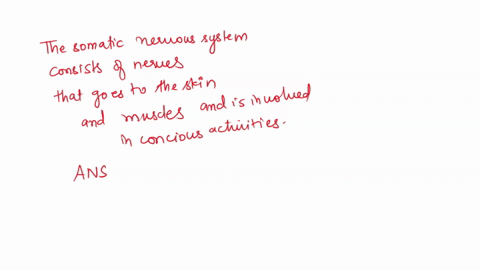 The somatic nervous system
consists of nerves
that goes to the skin
and muscles and is involved
in concious activities.
ANS